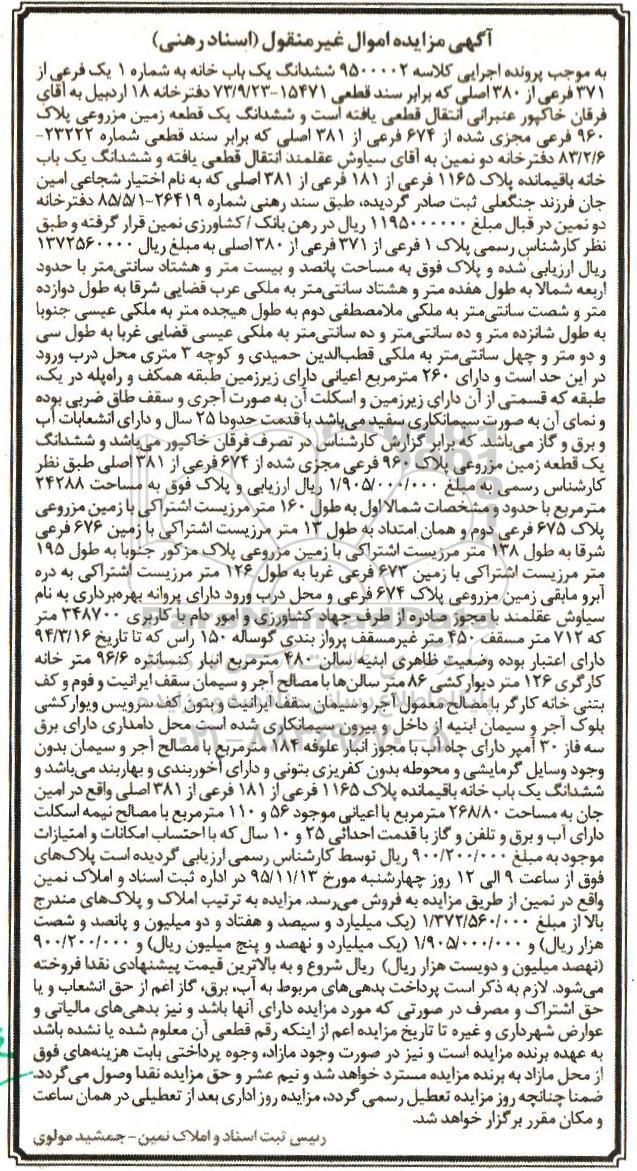 آگهی مزایده اموال غیر منقول (اسناد رهنی)
به موجب پرونده اجرایی کلاسه ۹۵۰۰۰۰۲ ششدانگ یک باب خانه به شماره ۱ یک فرعی از
۳۷۱ فرعی از ۳۸۰ اصلی که برابر سند قطعی ۱۵۴۷۱-۷۳/۹/۲۳ دفترخانه ۱۸ اردبیل به آقای
فرقان خاکپور عنبرانی انتقال قطعی یافته است و ششدانگ یک قطعه زمین مزروعی پلاک
۹۶۰ فرعی مجزی شده از ۶۷۴ فرعی از ۳۸۱ اصلی که برابر سند قطعی شماره ۲۳۲۲۲-
۸۳/۲/۶ دفترخانه دو نمین به آقای سیاوش عقلمند انتقال قطعی یافته و ششدانگ یک باب
خانه باقیمانده پلاک ۱۱۶۵ فرعی از ۱۸۱ فرعی از ۳۸۱ اصلی که به نام اختیار شجاعی امین
جان فرزند جنگعلی ثبت صادر گردیده، طبق سند رهنی شماره ۲۶۴۱۹-۸۵/۵/۱ دفترخانه
دو نمین در قبال مبلغ ۱۱۹۵۰۰۰۰۰۰ ریال در رهن بانک / کشاورزی نمین قرار گرفته و طبق
نظر کارشناس رسمی پلاک ۱ فرعی از ۳۷۱ فرعی از ۳۸۰ اصلی به مبلغ ریال ۱۳۷۲۵۶۰۰۰۰
ریال ارزیابی شده و پلاک فوق به مساحت پانصد و بیست متر و هشتاد سانتی‌متر با حدود
اربعه شمالا به طول هفده متر و هشتاد سانتی‌متر به ملکی عرب قضایی شرقا به طول دوازده
متر و شصت سانتی‌متر به ملکی ملامصطفی دوم به طول هیجده متر به ملکی عیسی جنوبا
به طول شانزده متر و ده سانتی‌متر و ده سانتی‌متر به ملکی عیسی قضایی غربا به طول سی
و دو متر و چهل سانتی‌متر به ملکی قطب‌الدین حمیدی و کوچه ۳ متری محل درب ورود
در این حد است و دارای ۲۶۰ مترمربع اعیانی دارای زیرزمین طبقه همکف و راه‌پله در یک،
طبقه که قسمتی از آن دارای زیرزمین و اسکلت آن به صورت آجری و سقف طاق ضربی بوده
و نمای آن به صورت سیمانکاری سفید می‌باشد با قدمت حدودا ۲۵ سال و دارای انشعابات آب
و برق و گاز می‌باشد. که برابر گزارش کارشناس در تصرف فرقان خاکپور می‌باشد و ششدانگ
یک قطعه زمین مزروعی پلاک ۹۶۰ فرعی مجزی شده از ۶۷۴ فرعی از ۳۸۱ اصلی طبق نظر
کارشناس رسمی به مبلغ ۱/۹۰۵/۰۰۰/۰۰۰ ریال ارزیابی و پلاک فوق به مساحت ۲۴۲۸۸
مترمربع با حدود و مشخصات شمالا اول به طول ۱۶۰ متر مرزیست اشتراکی با زمین مزروعی
پلاک ۶۷۵ فرعی دوم و همان امتداد به طول ۱۳ متر مرزیست اشتراکی با زمین ۶۷۶ فرعی
شرقا به طول ۱۳۸ متر مرزیست اشتراکی با زمین مزروعی پلاک مزکور جنوبا به طول ۱۹۵
متر مرزیست اشتراکی با زمین ۶۷۳ فرعی غربا به طول ۱۲۶ متر مرزیست اشتراکی به دره
آبرو مابقی زمین مزروعی پلاک ۶۷۴ فرعی و محل درب ورود دارای پروانه بهره‌برداری به نام
سیاوش عقلمند با مجوز صادره از طرف جهاد کشاورزی و امور دام با کاربری ۳۴۸۷۰۰ متر
که ۷۱۲ متر مسقف ۴۵۰ متر غیرمسقف پرواز بندی گوساله ۱۵۰ راس که تا تاریخ ۹۴/۳/۱۶
دارای اعتبار بوده وضعیت ظاهری ابنیه سالن ۴۸۰ مترمربع انبار کنسانتره ۹۶/۶ متر خانه
کارگری ۱۲۶ متر دیوارکشی ۸۶ متر سالن‌ها با مصالح آجر و سیمان سقف ایرانیت و فوم و کف
بتنی خانه کارگر با مصالح معمول آجر و سیمان سقف ایرانیت و بتون کف سرویس ویوارکشی
بلوک آجر و سیمان ابنیه از داخل و بیرون سیمانکاری شده است محل دامداری دارای برق
سه فاز ۳۰ آمپر دارای چاه آب با مجوز انبار علوفه ۱۸۴ مترمربع با مصالح آجر و سیمان بدون
وجود وسایل گرمایشی و محوطه بدون کفریزی بتونی و دارای آخوربندی و بهاربند می‌باشد و
ششدانگ یک باب خانه باقیمانده پلاک ۱۱۶۵ فرعی از ۱۸۱ فرعی از ۳۸۱ اصلی واقع در امین
جان به مساحت ۲۶۸/۸۰ مترمربع با اعیانی موجود ۵۶ و ۱۱۰ مترمربع با مصالح نیمه اسکلت
دارای آب و برق و تلفن و گاز با قدمت احداثی ۲۵ و ۱۰ سال که با احتساب امکانات و امتیازات
موجود به مبلغ ۹۰۰/۲۰۰/۰۰۰ ریال توسط کارشناس رسمی ارزیابی گردیده است پلاک‌های
فوق از ساعت ۹ الی ۱۲ روز چهارشنبه مورخ ۹۵/۱۱/۱۳ در اداره ثبت اسناد و املاک نمین
واقع در نمین از طریق مزایده به فروش می‌رسد. مزایده به ترتیب املاک و پلاک‌های مندرج
بالا از مبلغ ۱/۳۷۲/۵۶۰/۰۰۰ (یک میلیارد و سیصد و هفتاد و دو میلیون و پانصد و شصت
هزار ریال) و ۱/۹۰۵/۰۰۰/۰۰۰ (یک میلیارد و نهصد و پنج میلیون ریال) و ۹۰۰/۲۰۰/۰۰۰
(نهصد میلیون و دویست هزار ریال) ریال شروع و به بالاترین قیمت پیشنهادی نقدا فروخته
می‌شود. لازم به ذکر است پرداخت بدهی‌های مربوط به آب، برق، گاز اعم از حق انشعاب و یا
حق اشتراک و مصرف در صورتی که مورد مزایده دارای آنها باشد و نیز بدهی‌های مالیاتی و
عوارض شهرداری و غیره تا تاریخ مزایده اعم از اینکه رقم قطعی آن معلوم شده یا نشده باشد
به عهده برنده مزایده است و نیز در صورت وجود مازاد، وجوه پرداختی بابت هزینه‌های فوق
از محل مازاد به برنده مزایده مسترد خواهد شد و نیم عشر و حق مزایده نقدا وصول می‌گردد.
ضمنا چنانچه روز مزایده تعطیل رسمی گردد، مزایده روز اداری بعد از تعطیلی در همان ساعت
و مکان مقرر برگزار خواهد شد.
رییس ثبت اسناد و املاک نمین- جمشید مولوی